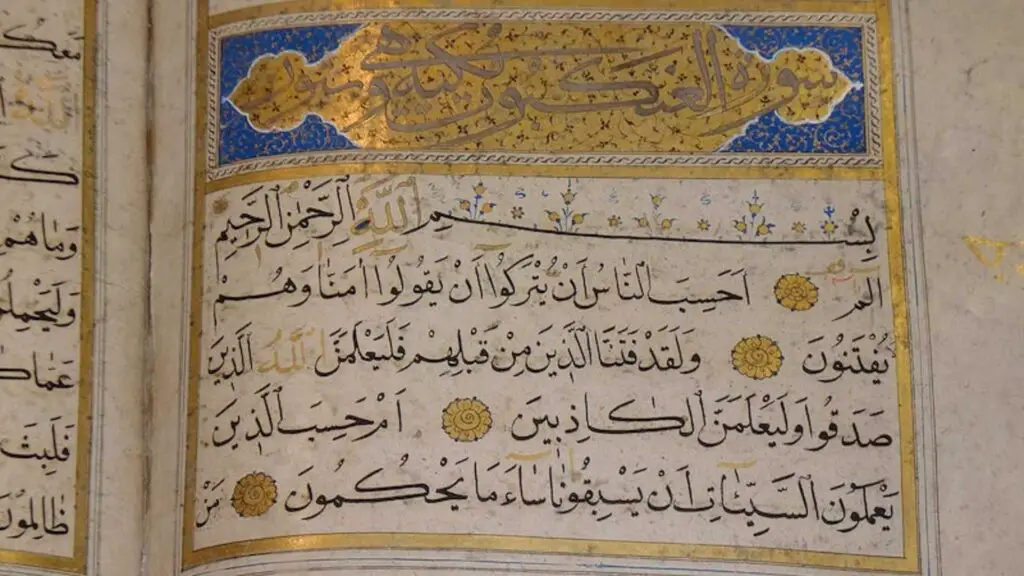 سورة العنكبوت مكية وهى
بِسْمِ اللَّهِ الرَّحْمٰنِ الرَّحِيمِ
الم اَحَسِبَ النَّاسُ اَنْ يُتْرَكُوا اَنْ يَقُولُوا اٰمَنَّا وَهُمْ
يُفْتَنُونَ وَلَقَدْ فَتَنَّا الَّذِينَ مِنْ قَبْلِهِمْ فَلَيَعْلَمَنَّ اللَّهُ الَّذِينَ
صَدَقُوا وَلَيَعْلَمَنَّ الْكَاذِبِينَ اَمْ حَسِبَ الَّذِينَ
يَعْمَلُونَ السَّيِّئَاتِ اَنْ يَسْبِقُونَا سَاءَ مَا يَحْكُمُونَ مَنْ
مَعَكُ
وَمَا هُمْ
وَلَيَحْمِلُ
عَمَّا كَا
فَلَبِثَ
ظَالِمُونَ